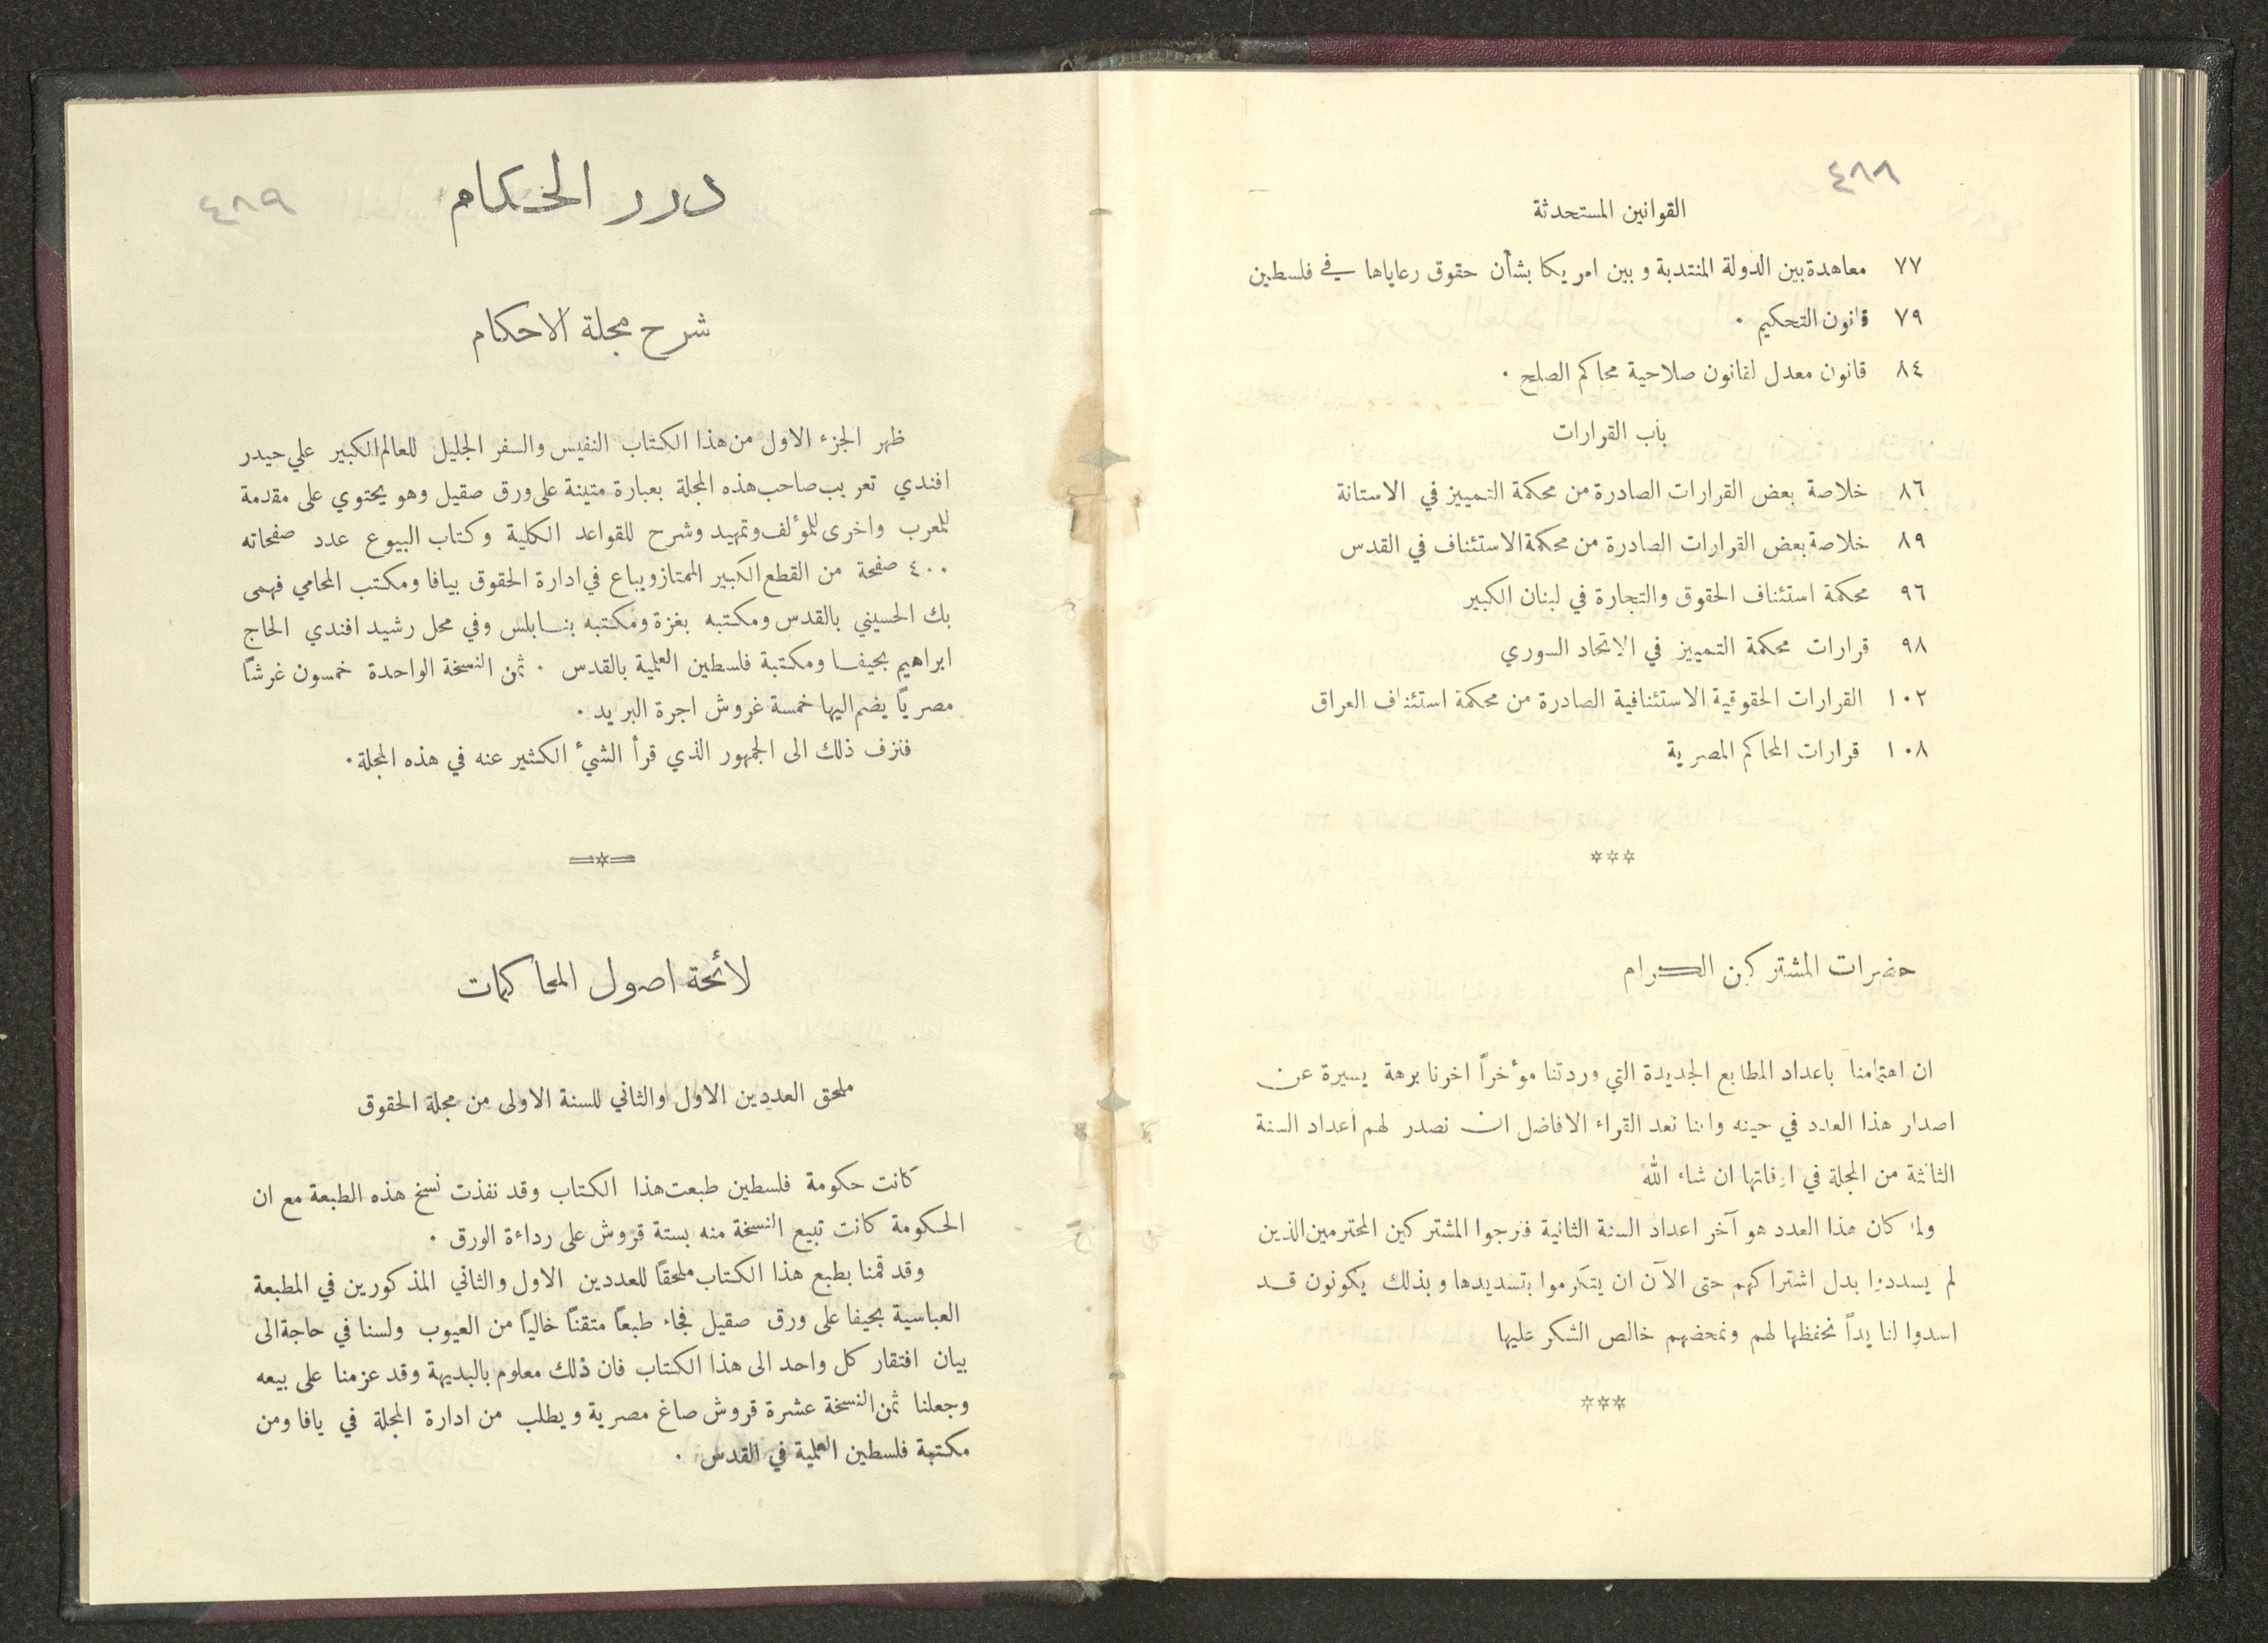 ٤٨٨
القوانين المستحدثة
٧٧ معاهدة بين الدولة المنتدبة وبين امريكا بشأن حقوق رعاياها في فلسطين
٧٩ قانون التحكيم .
٨٤ قانون معدل لقانون صلاحية محاكم الصلح .
باب القرارات
٨٦ خلاصة بعض القرارات الصادرة من محكمة التمييز في الاستانة
٨٩ خلاصة بعض القرارات الصادرة من محكمة الاستئناف في القدس
٩٦ محكمة استئناف الحقوق والتجارة في لبنان الكبير
٩٨ قرارات محكمة التمييز في الاتحاد السوري
١٠٢ القرارات الحقوقية الاستئنافية الصادرة من محكمة استئناف العراق
١٠٨ قرارات المحاكم المصرية
***
حضرات المشتركين الكرام
ان اهتمامنا باعداد المطابع الجديدة التي وردتنا مؤخراً اخرنا برهة يسيرة عن
اصدار هذا العدد في حينه واننا نعد القراء الافاضل ان نصدر لهم اعداد السنة
الثالثة من المجلة في اوقاتها ان شاء الله
ولما كان هذا العدد هو آخر اعداد السنة الثانية فنرجوا المشتركين المحترمين الذين
لم يسددوا بدل اشتراكهم حتى الآن ان يتكرموا بتسديدها وبذلك يكونون قد
اسدوا لنا يداً نحفظها لهم ونمحضهم خالص الشكر عليها
***
٤٨٩
درر الحكام
شرح مجلة الاحكام
ظهر الجزء الاول من هذا الكتاب النفيس والسفر الجليل للعالم الكبير علي حيدر
افندي تعريب صاحب هذه المجلة بعبارة متينة على ورق صقيل وهو يحتوي على مقدمة
للمعرب واخرى للمؤلف وتمهيد وشرح للقواعد الكلية وكتاب البيوع عدد صفحاته
٤٠٠ صفحة من القطع الكبير الممتاز ويباع في ادارة الحقوق بيافا ومكتب المحامي فهمي
بك الحسيني بالقدس ومكتبه بغزة ومكتبه بنابلس وفي محل رشيد افندي الحاج
ابراهيم بحيفا ومكتبة فلسطين العلمية بالقدس . ثمن النسخة الواحدة خمسون غرشاً
مصرياً يضم اليها خمسة غروش اجرة البريد .
فنزف ذلك الى الجمهور الذي قرأ الشيء الكثير عنه في هذه المجلة .
=*=
لائحة اصول المحاكمات
ملحق العددين الاول والثاني للسنة الاولى من مجلة الحقوق
كانت حكومة فلسطين طبعت هذا الكتاب وقد نفذت نسخ هذه الطبعة مع ان
الحكومة كانت تبيع النسخة منه بستة قروش على رداءة الورق .
وقد قمنا بطبع هذا الكتاب ملحقاً للعددين الاول والثاني المذكورين في المطبعة
العباسية بحيفا على ورق صقيل فجاء طبعاً متقناً خالياً من العيوب ولسنا في حاجة الى
بيان افتقار كل واحد الى هذا الكتاب فان ذلك معلوم بالبديهة وقد عزمنا على بيعه
وجعلنا ثمن النسخة عشرة قروش صاغ مصرية ويطلب من ادارة المجلة في يافا ومن
مكتبة فلسطين العلمية في القدس .